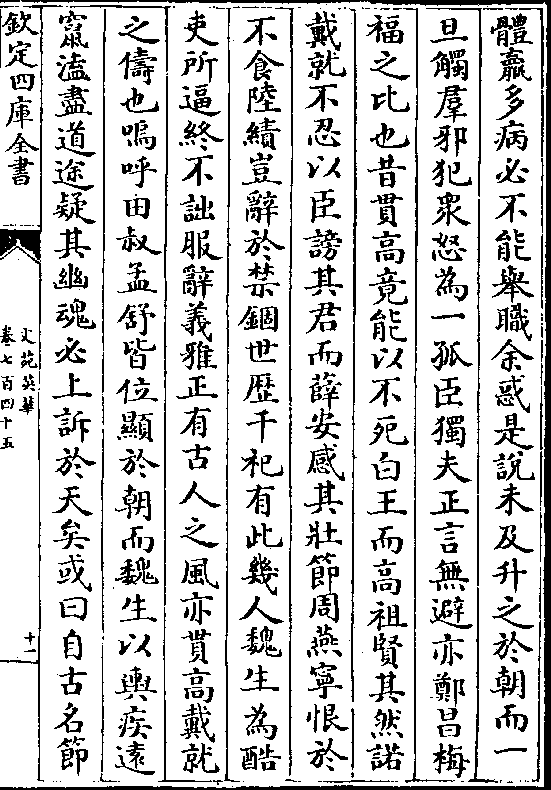 體羸多病必不能舉職余惑是說未及升之於朝而一
旦觸羣邪犯衆怒為一孤臣獨夫正言無避亦鄭昌梅
福之比也昔貫高竟能以不死白王而高祖賢其然諾
戴就不忍以臣謗其君而薛安感其壯節周燕寧恨於
不食陸績豈辭於禁錮世歴千祀有此幾人魏生為酷
吏所逼終不詘服辭義雅正有古人之風亦貫高戴就
之儔也嗚呼田叔孟舒皆位顯於朝而魏生以輿疾逺
竄溘盡道途疑其幽魂必上訴於天矣或曰自古名節
欽定四庫全書
文苑英華
卷七百四十五
十一